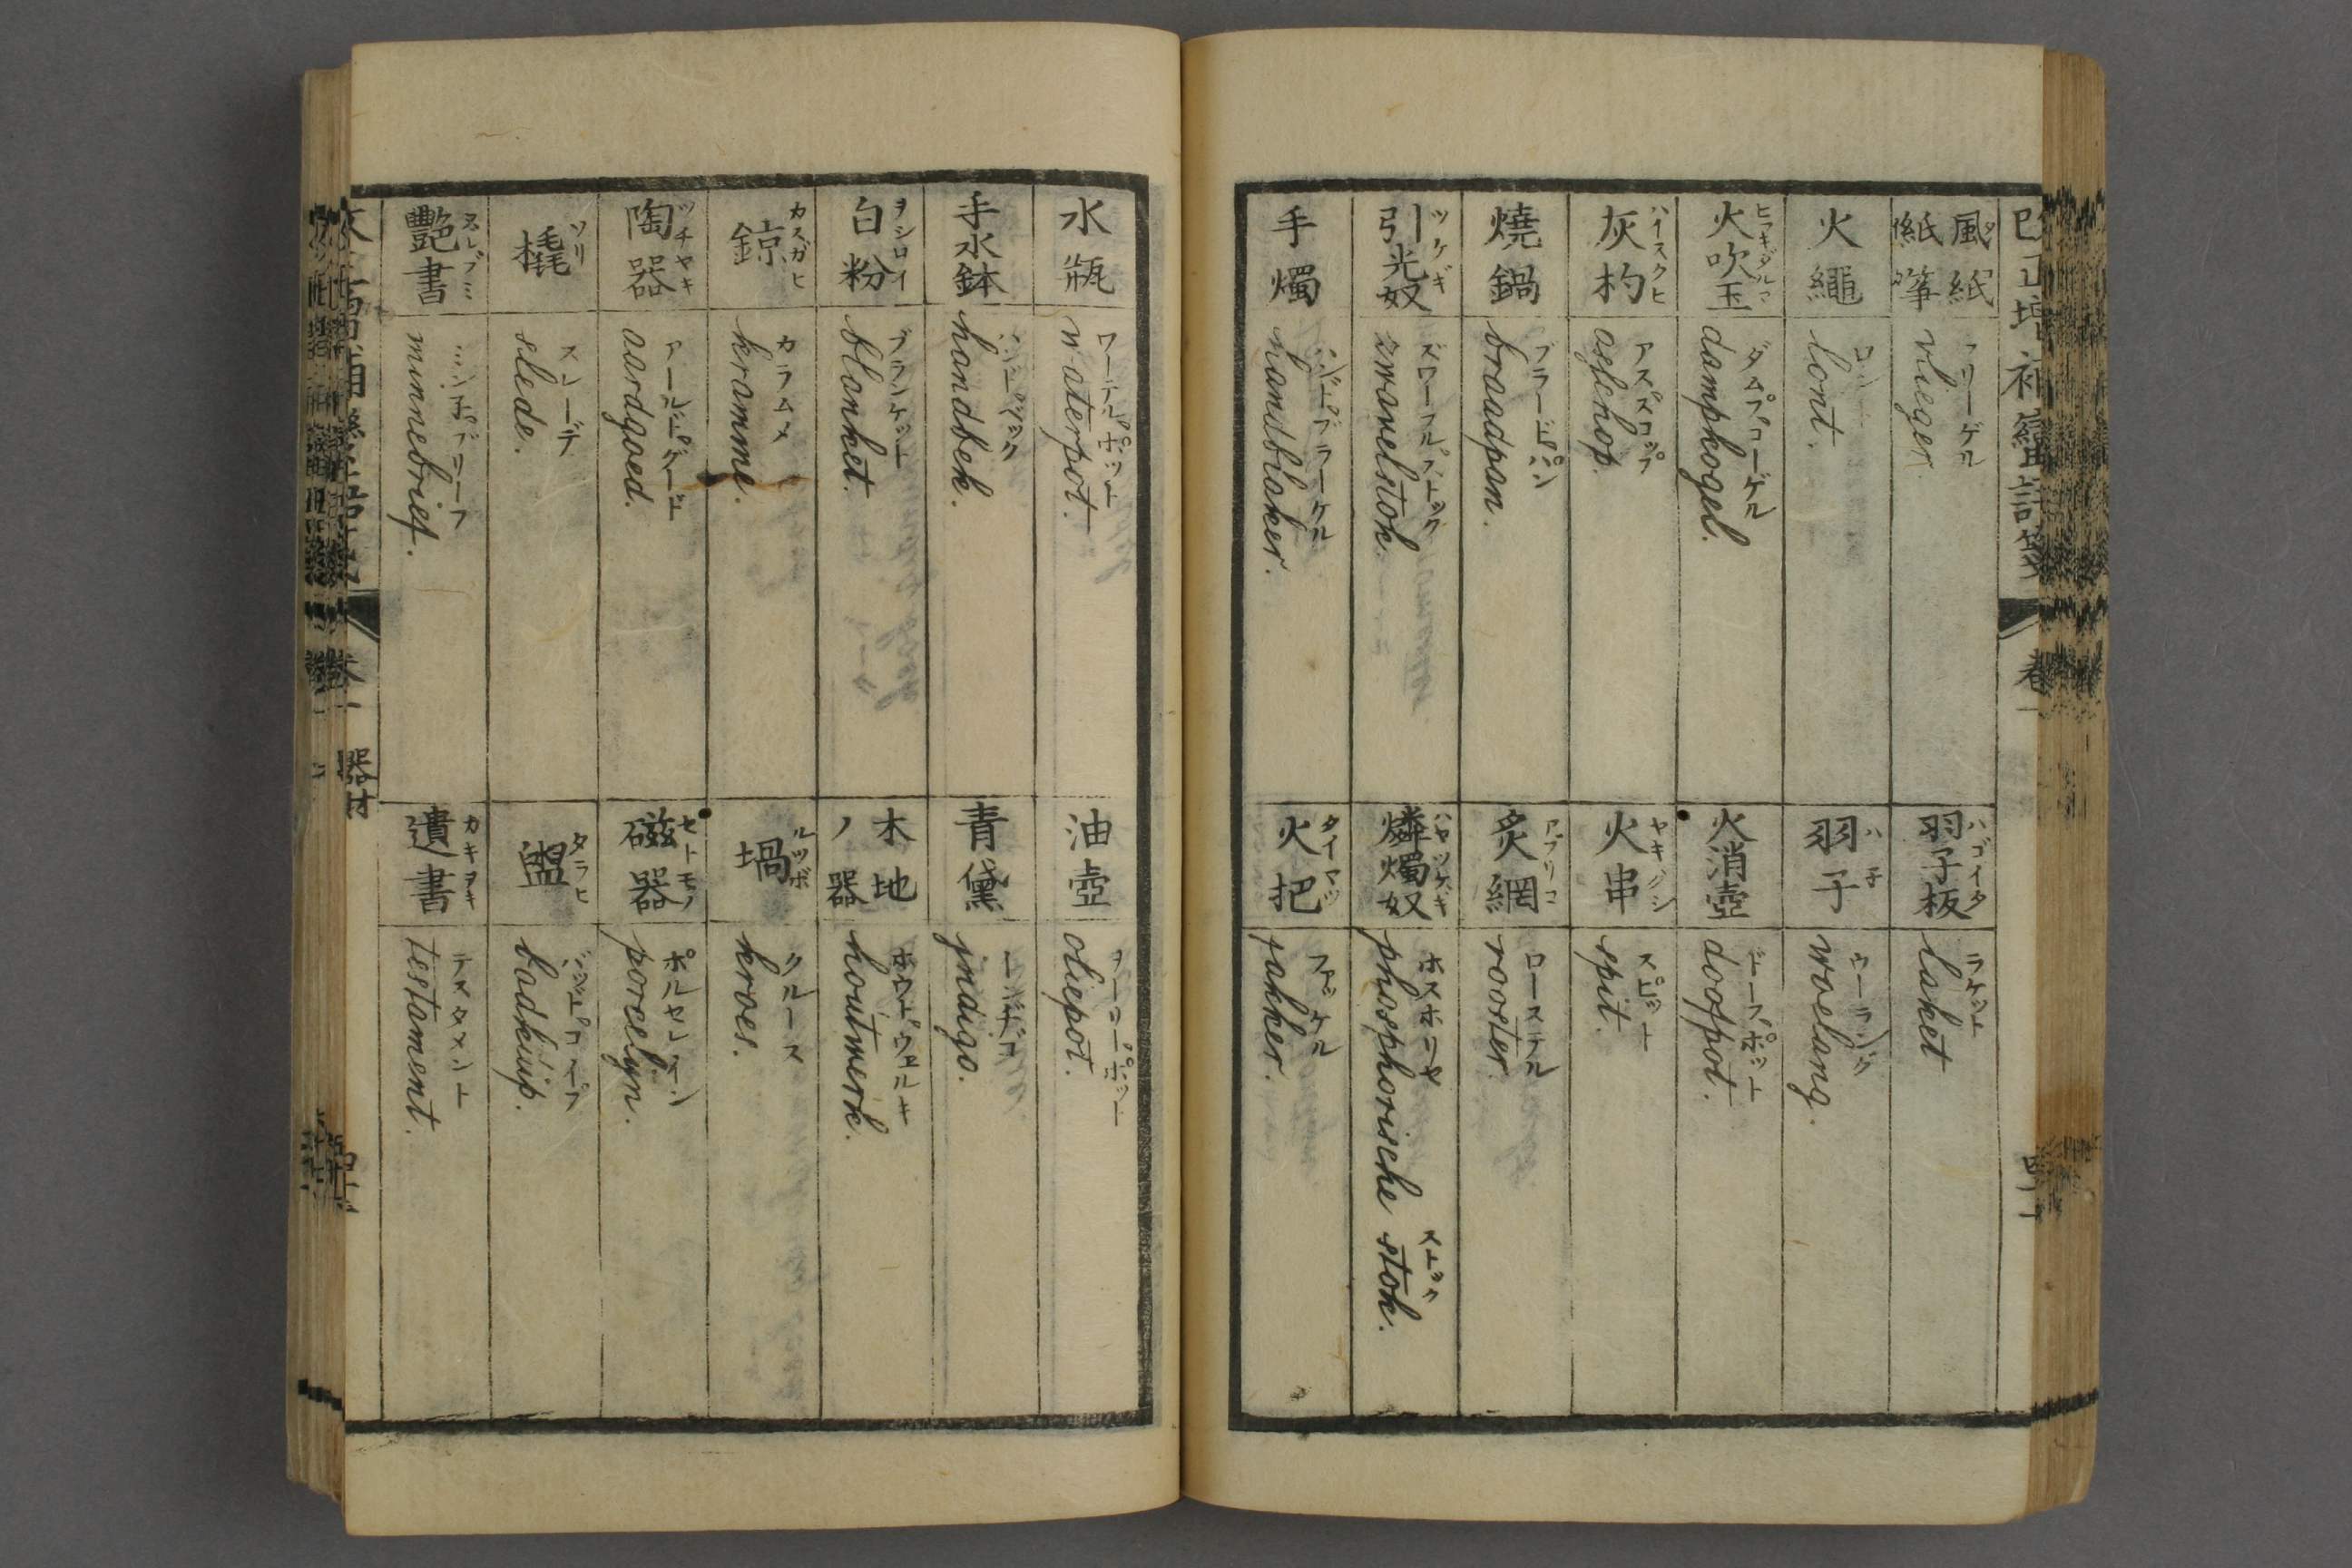 改正増補蠻語箋 卷一
風紙 紙箏 フリーゲル vlieger.
火繩 ロント lont.
火吹玉 ヒフキダルマ ダムプコーゲル dampkogel.
灰杓 ハイスクヒ アススコップ aschop.
燒鍋 ブラードパン braadpan.
引光奴 ツケギ ズワーフルストック zwavelstok.
手燭 ハンドブラーケル handblaker.
羽子板 ハゴイタ ラケット laket
羽子 ハ子 ウーラング woelang.
火消壺 ドーフポット doofpot.
火串 ヤキグシ スピット spit.
炙網 アブリコ ローステル rooster.
燐燭奴 ハヤツケギ ホスホリセ ストック phosphorische stok.
火把 タイマツ ファッケル fakker.
水瓶 ワーテルポット waterpot.
手水鉢 ハンドベック handbek.
白粉 ヲシロイ ブランケット blanket.
鍄 カスガヒ カラムメ kramme.
陶器 ツチヤキ アールドグード aardgoed.
橇 ソリ スレーデ slede.
艷書 ヌレブミ ミンネブリーフ minnebrief.
油壺 ヲーリーポット oliepot.
青黛 インヂゴ jndigo.
木地ノ器 ホウトウェルキ houtwerk.
堝 ルツボ クルース kroes.
磁器 セトモノ ポルセレイン porcelyn.
盥 タラヒ バッドコイプ badkuip.
遺書 カキヲキ テスタメント testament.
卷一 器材